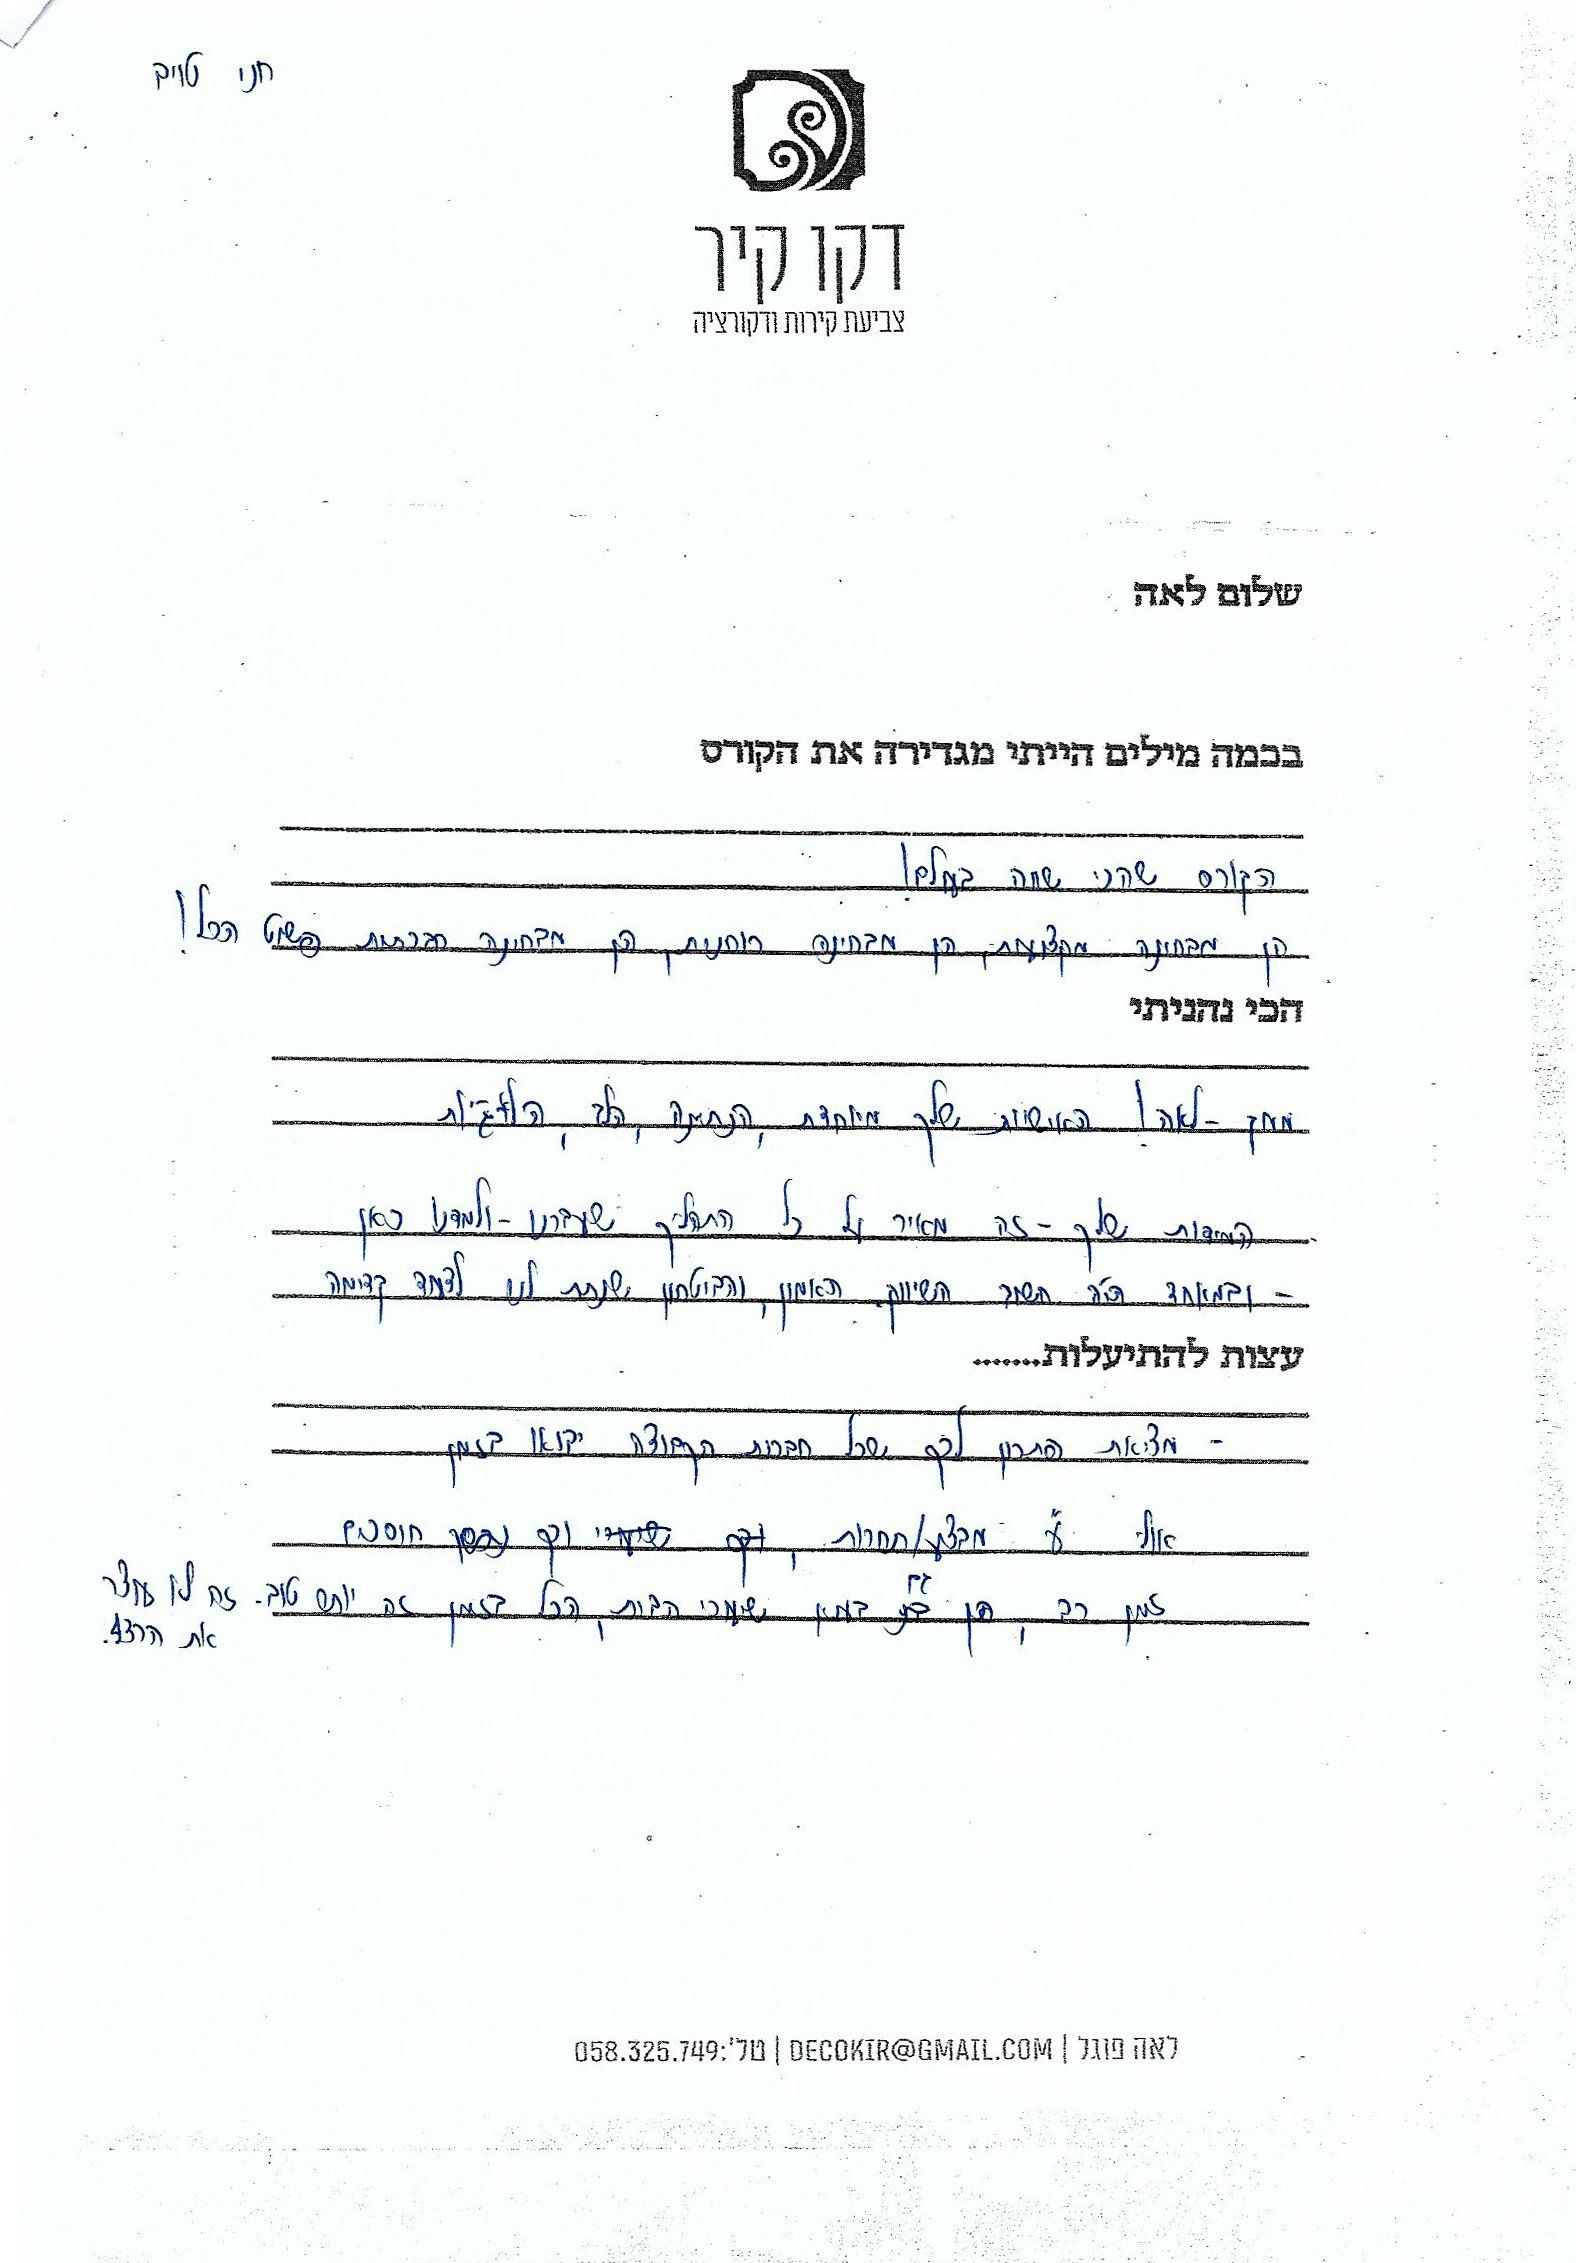 חני טויב
דקו קיר
צביעת קירות ודקורציה
שלום לאה
בכמה מילים הייתי מגדירה את הקורס
הקורס שהכי שווה בעולם!
הן מבחינה מקצועית, הן מבחינה רוחנית, הן מבחינה חברתית פשוט הכל!
הכי נהניתי
ממך - לאה! האישיות שלך מיוחדת, הנתינה, הלב,
המידות שלך - זה מאיר על כל התהליך שעברנו - ולמדנו כאן
- ובמאוד היה חשוב השיווק, האמון, והביטחון שנתת לנו לצעוד קדימה
עצות להתיעלות.......
- מציאת פתרון לכך שכל חברות הקבוצה יבואו בזמן
אולי ע"י מבצע/תחרות, וכך חוסכים
זמן רב, הן גם שיעורי הבית, הכל בזמן זה יותר טוב. זה לא עוצר
את הרצף.
לאה פוגל | DECOKIR@GMAIL.COM | טל':058.325.749